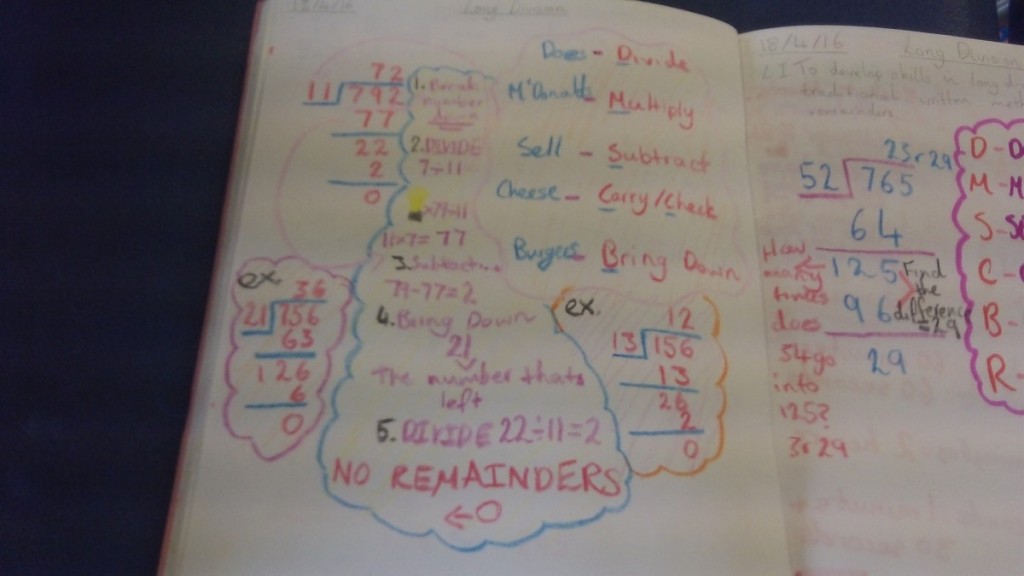 18/4/16 Long Division
72
11 792
77
22
2
0
1. Break
number
down
2. DIVIDE
7÷11
11x7=77
3. Subtract...
79-77=2
4. Bring Down
21
The number thats
left
5. DIVIDE 22÷11=2
NO REMAINDERS
←0
Does - Divide
M'Donalds - Multiply
Sell - Subtract
Cheese - Carry/Check
Burgers - Bring Down
ex.
36
21 756
63
126
6
0
ex.
12
13 156
13
26
2
0
18/4/16 Long Division
LI To develop skills in long d
traditional written meth
remainders
23r29
52 765
64
125
96
29
How
many
times
does
54 go
into
125?
3r29
Find
the
difference
=29
D-D
M-M
S-S
C-
B-
R-